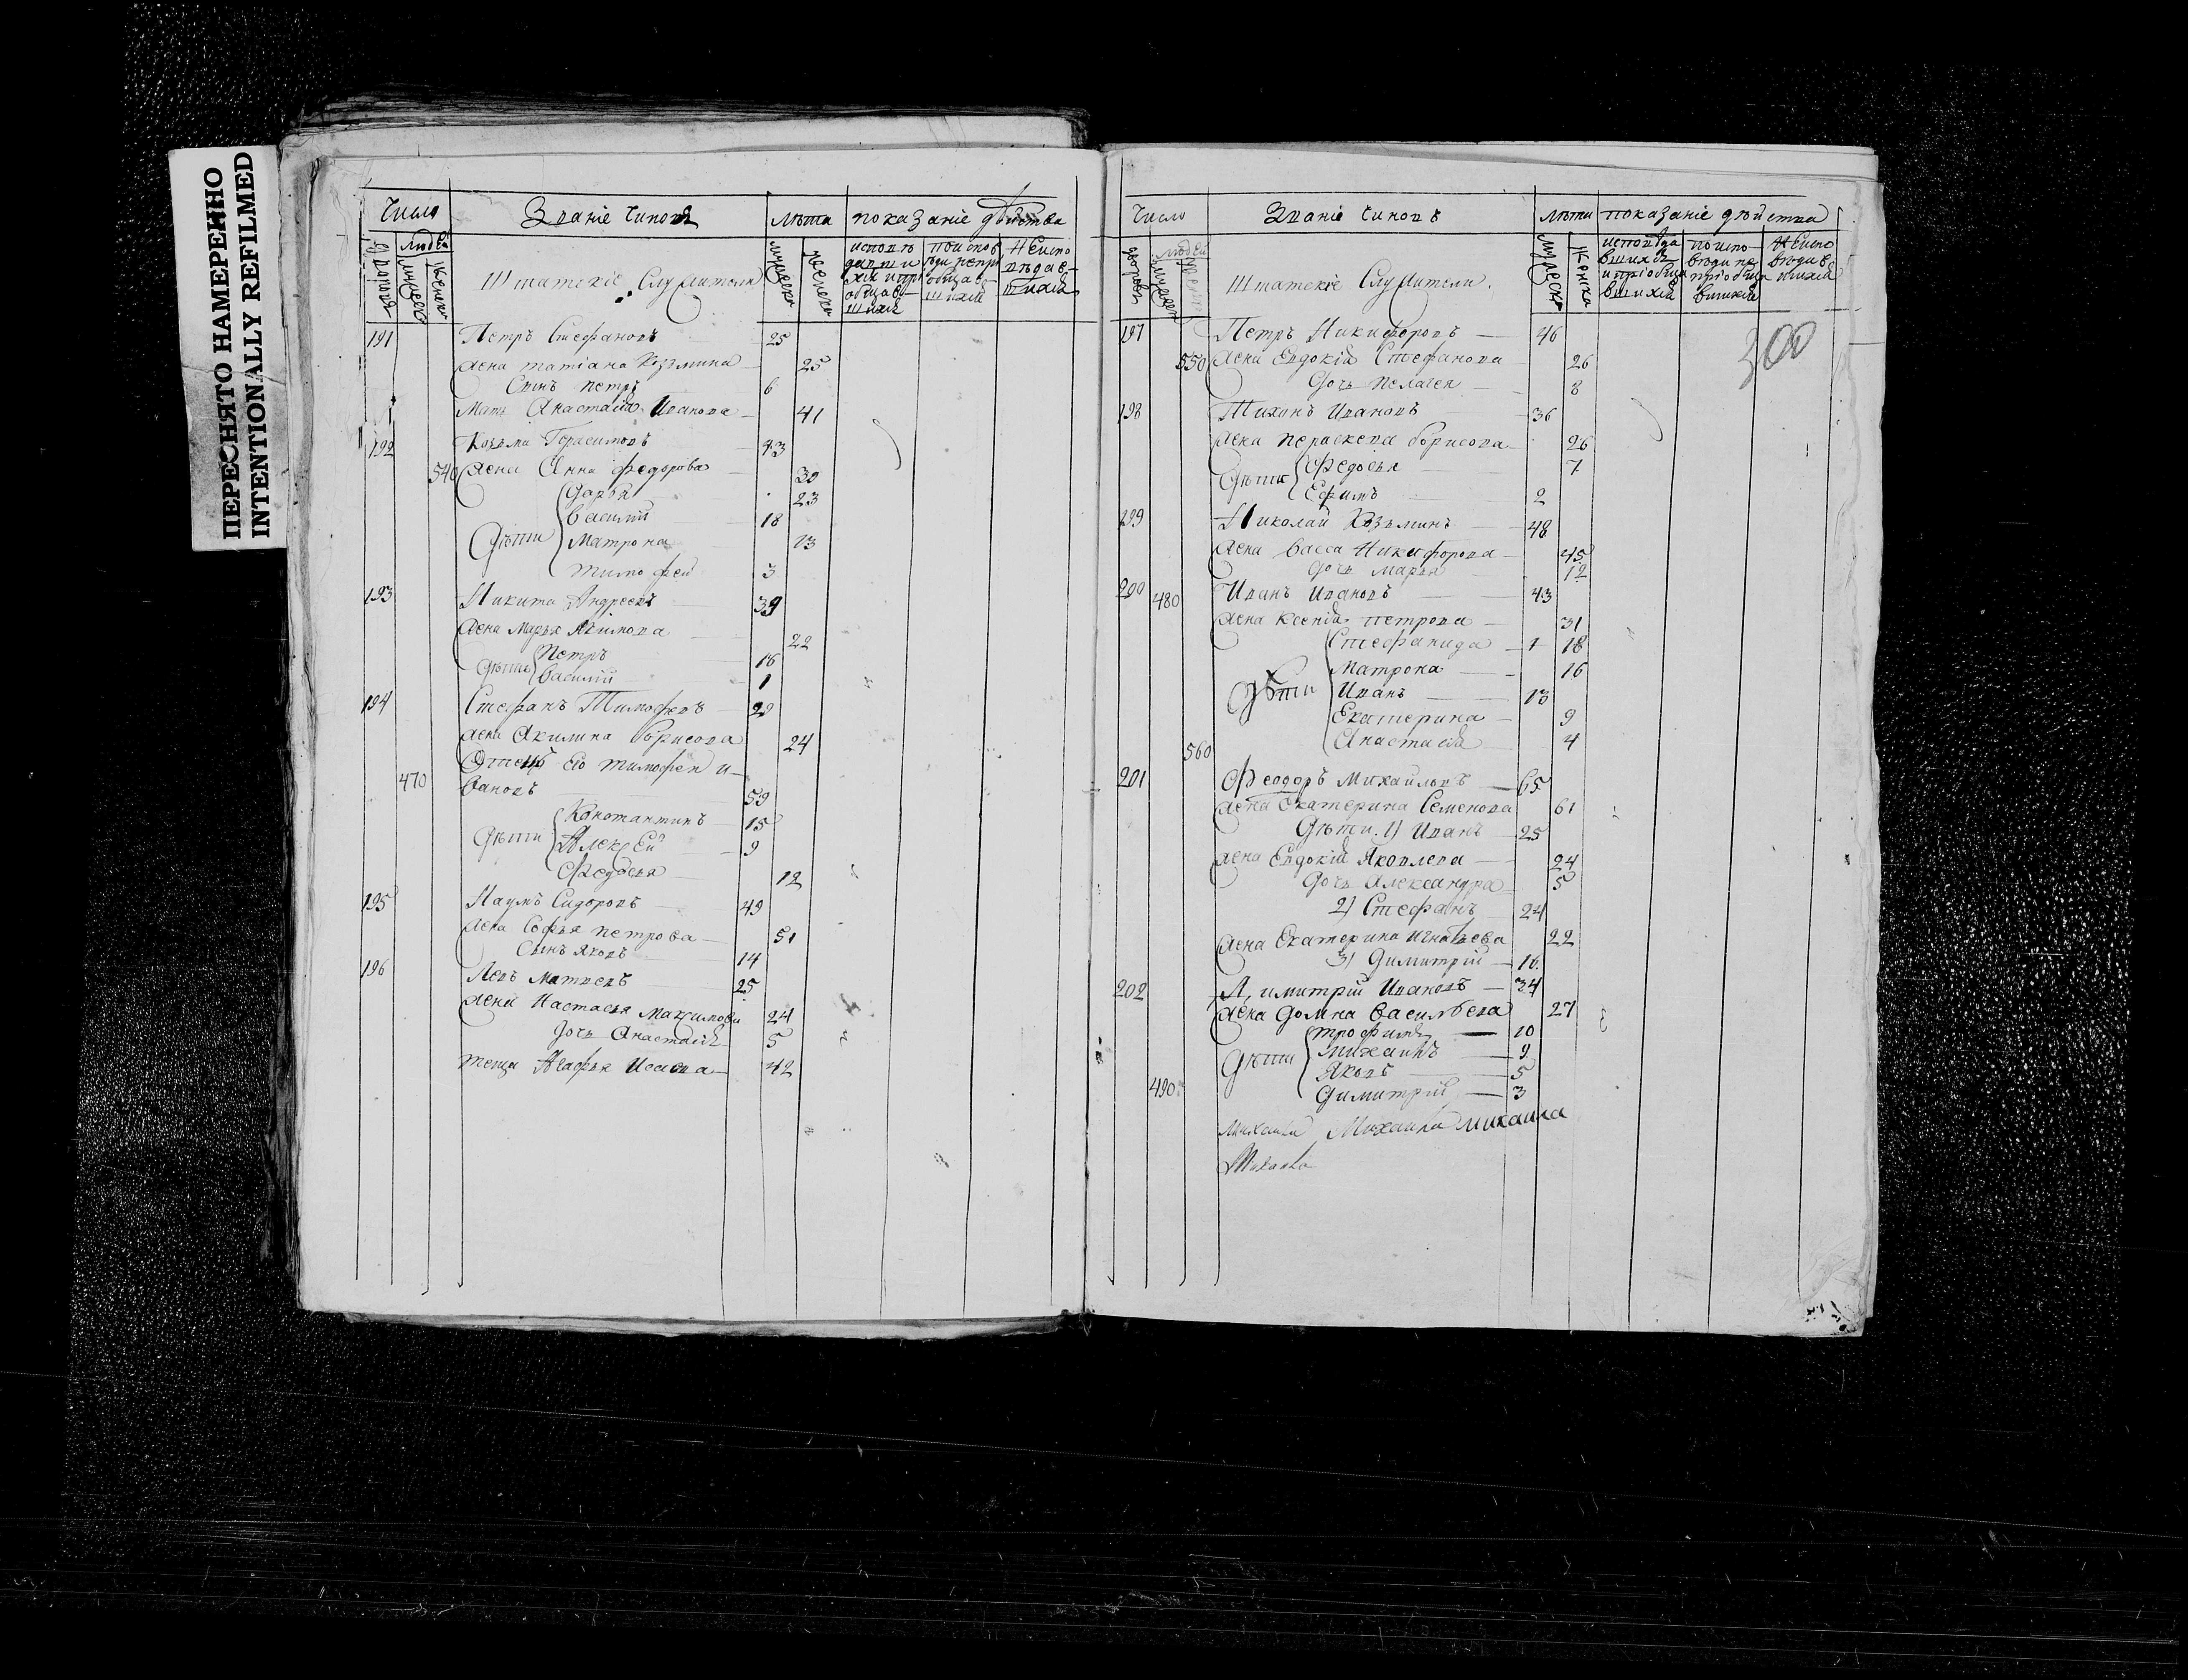 ПЕРЕСНЯТО НАМЕРЕННО
INTENTIONALLY REFILMED
Число Званіе Чиновъ лѣта показаніе дѣйства
дворовъ людей мужеска женска Штатскіе Служители мужеска женска исповѣдавшихся и пріобщавшихся
191 Петръ Стефановъ 25
жена татіана Козмина 25
Сынъ петръ 6
Мать Анастасія Иванова 41
192 Козьма Герасимовъ 43
540 жена Анна федорова 30
Дарья 23
Василій 18
Дѣти Матрона 13
тимофей 3
193 Никита Андреевъ 39
жена Марья Акимова 22
Петръ 16
Дѣти Василій 1
194 Стефанъ Тимофѣевъ 29
жена Акилина борисова 24
Отецъ Его тимофей и-
470 вановъ 59
Константинъ 15
Дѣти Алексѣй 9
Федосья 12
195 Наумъ Сидоровъ 49
жена Софья петрова 51
Сынъ Яковъ 14
196 Левъ матвеевъ 25
жена Настасья Максимова 24
дочь Анастасія 5
теща Агафья Исаева 42
Число Званіе Чиновъ лѣта показаніе дѣйства
дворовъ людей мужеска женска Штатскіе Служители. мужеска женска исповѣдавшихся и пріобщавшихся
197 Петръ Никифоровъ 46
300
550 жена Евдокія Стефанова 26
дочь пелагея 8
198 Тихонъ Ивановъ 36
жена пераскева борисова 26
Федосья 7
Дѣти Ефимъ 2
199 Николай Козьминъ 48
жена васса Никифорова 45
дочь марья 12
200 480 Иванъ Ивановъ 43
жена Ксенія петрова 31
Стефанида 18
Матрона 16
Дѣти Иванъ 13
Екатерина 9
560 Анастасія 4
201 Феодоръ Михайловъ 65
жена Екатерина Семенова 61
Дѣти. 1) Иванъ 25
жена Евдокія Яковлева 24
дочь Александра 5
2) Стефанъ 24
жена Екатерина игнатьева 22
3) Димитрій 16.
202 Димитрій Ивановъ 34
жена домна васильева 27
трофимъ 10
Дѣти михаилъ 9
Яковъ 5
490 димитрій 3
михаила Михаила михаила
Михаила